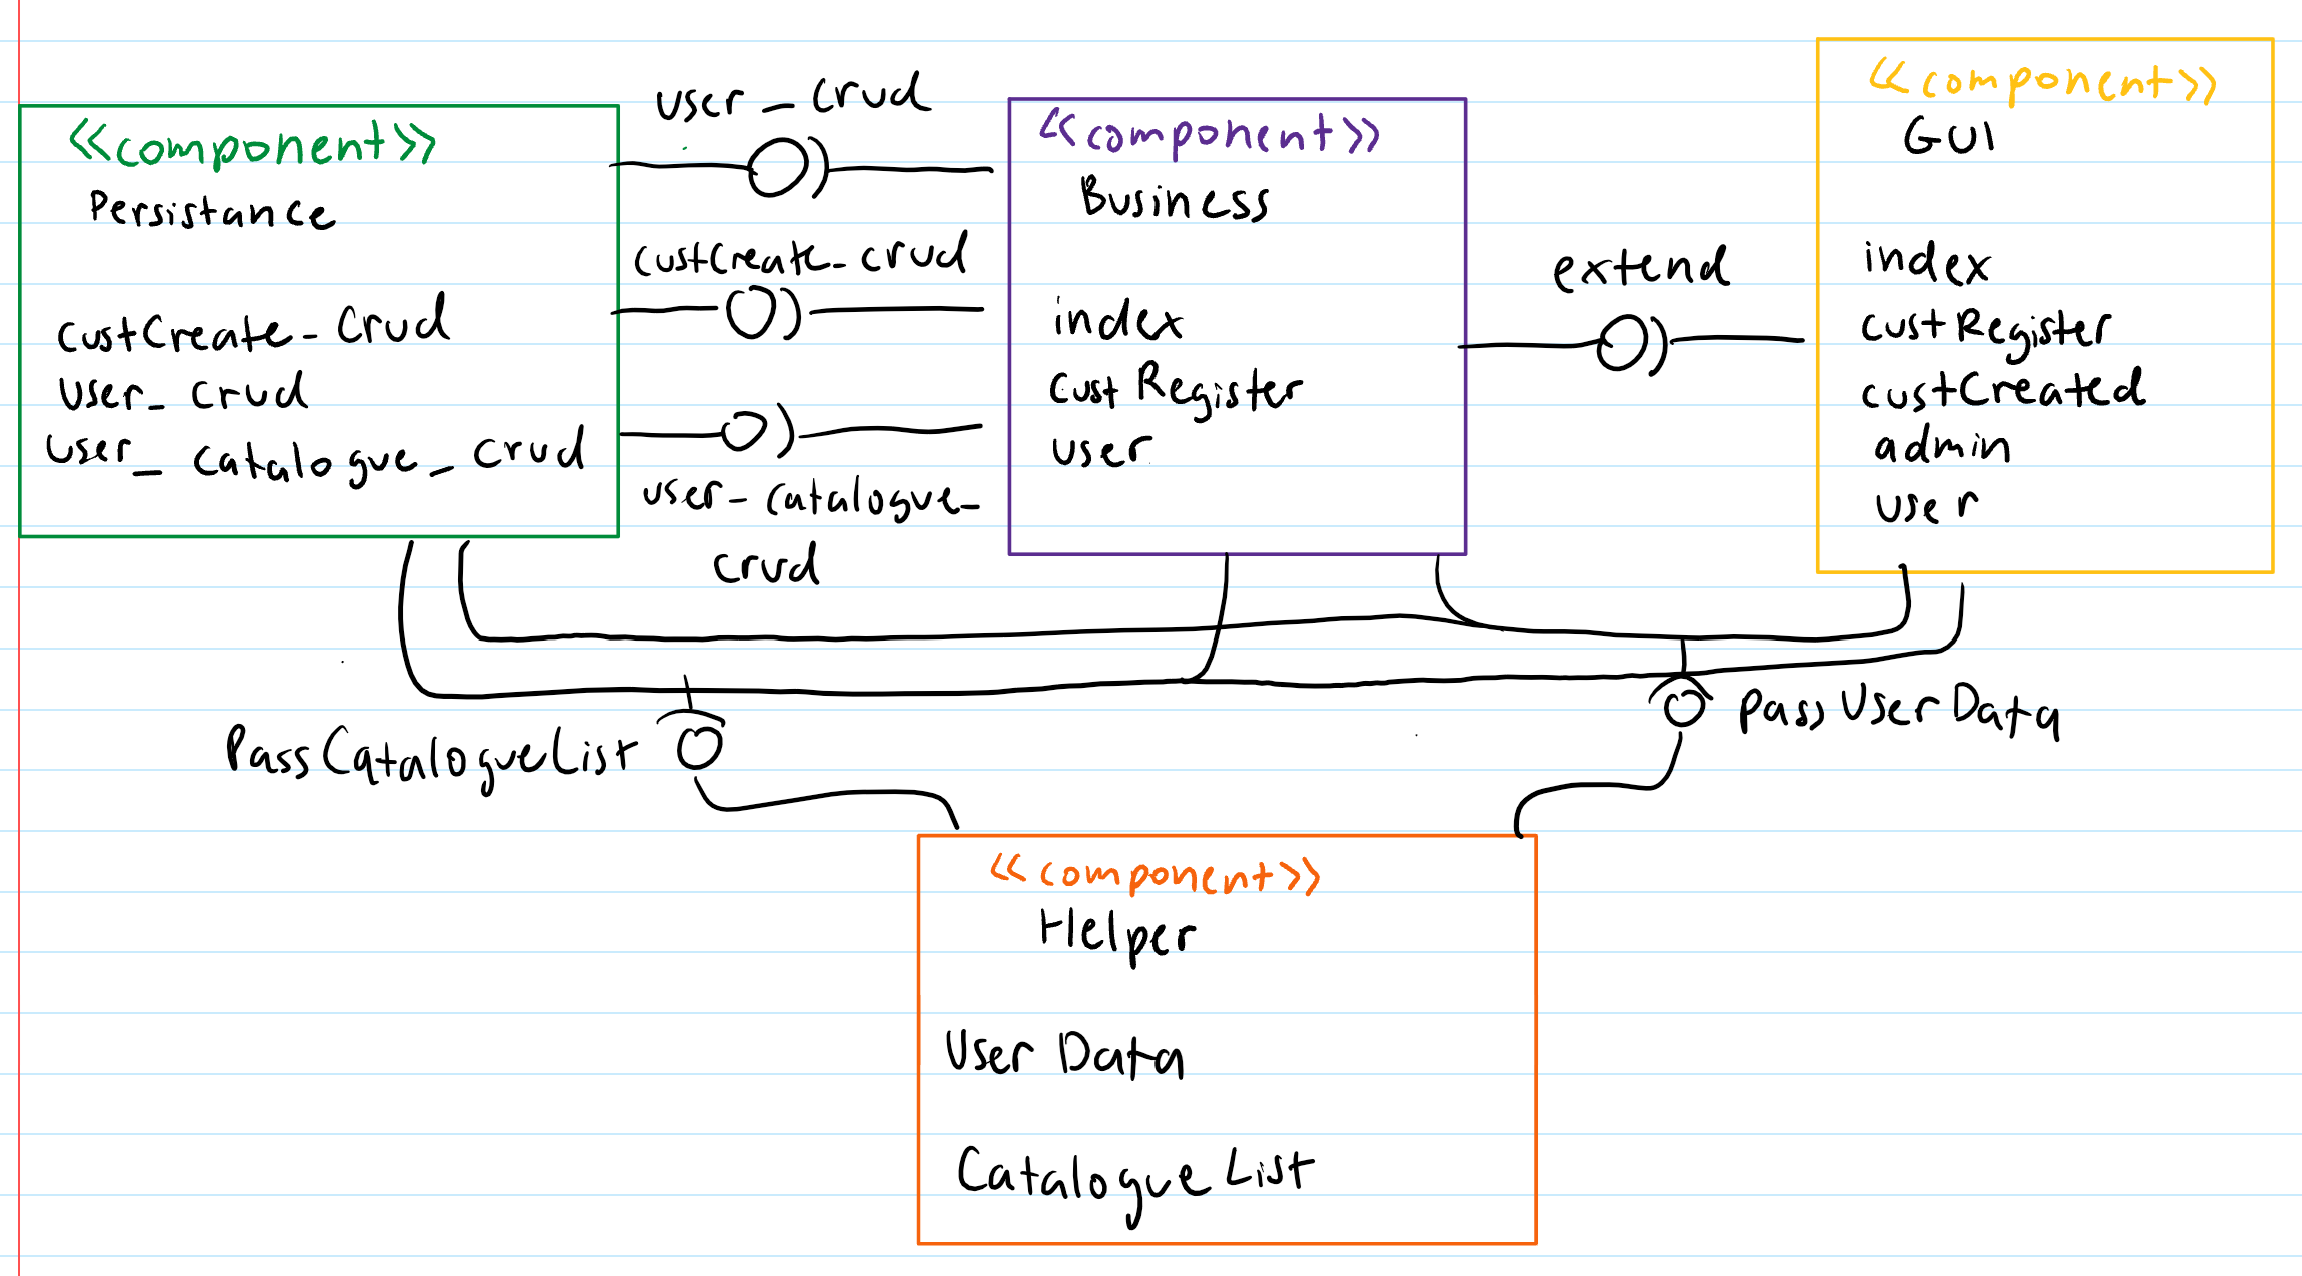 <<component>>
Persistance
custCreate_Crud
user_crud
user_catalogue_crud
user_crud
custCreate_crud
user_catalogue_
crud
<<component>>
Business
index
custRegister
user
extend
<<component>>
GUI
index
custRegister
custCreated
admin
user
PassCatalogueList
passUserData
<<component>>
Helper
User Data
Catalogue List